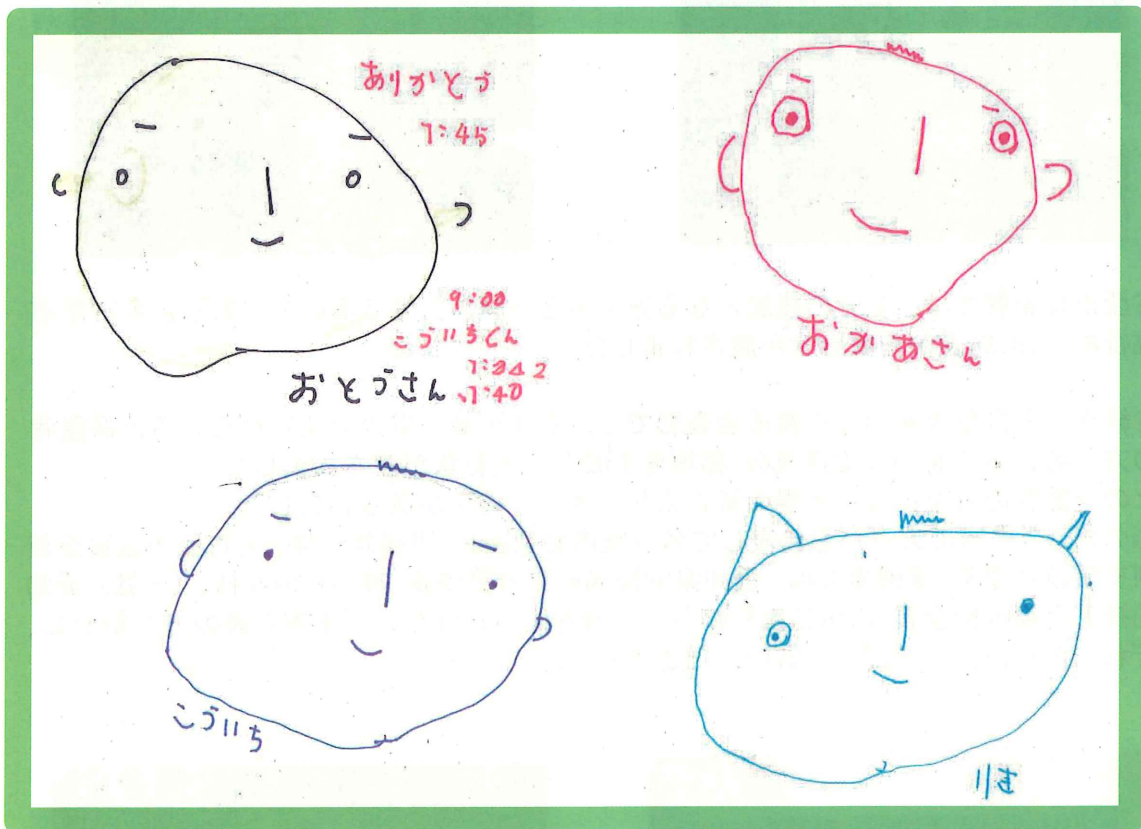 ありがとう
7:45
9:00
こういちくん
7:40
おとうさん
おかあさん
こういち
りき